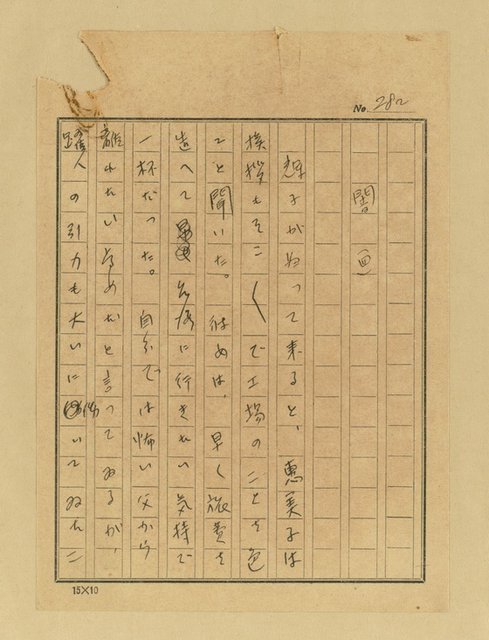 No. 282
闇 (四)
想子がやって来ると、恵美子は
挨拶もそこ〱で工場のことを色
〻と聞いた。彼女は、早く旅費を
造へて、台湾に行きたい気持で
一杯だった。自分では怖い父から
離れたいためだと言ってゐるが、
の引力も大いに働いてゐた。
15×10